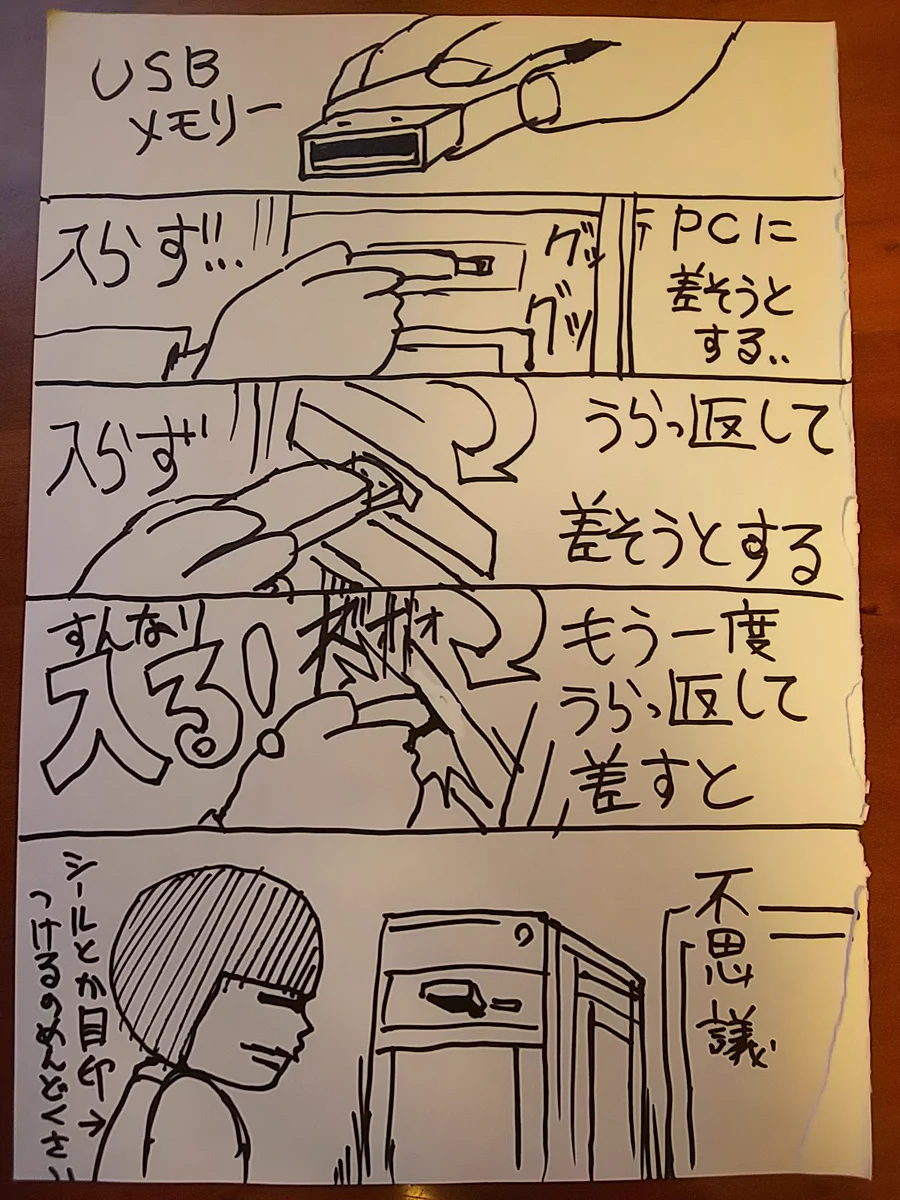 USB
メモリー
PCに
差そうと
する..
グッ
グッ
入らず!!...
うらっ返して
差そうとする
入らず
もう一度
うらっ返して
差すと
すんなり
入る!
不思議
シールとか目印→
つけるのめんどくさい